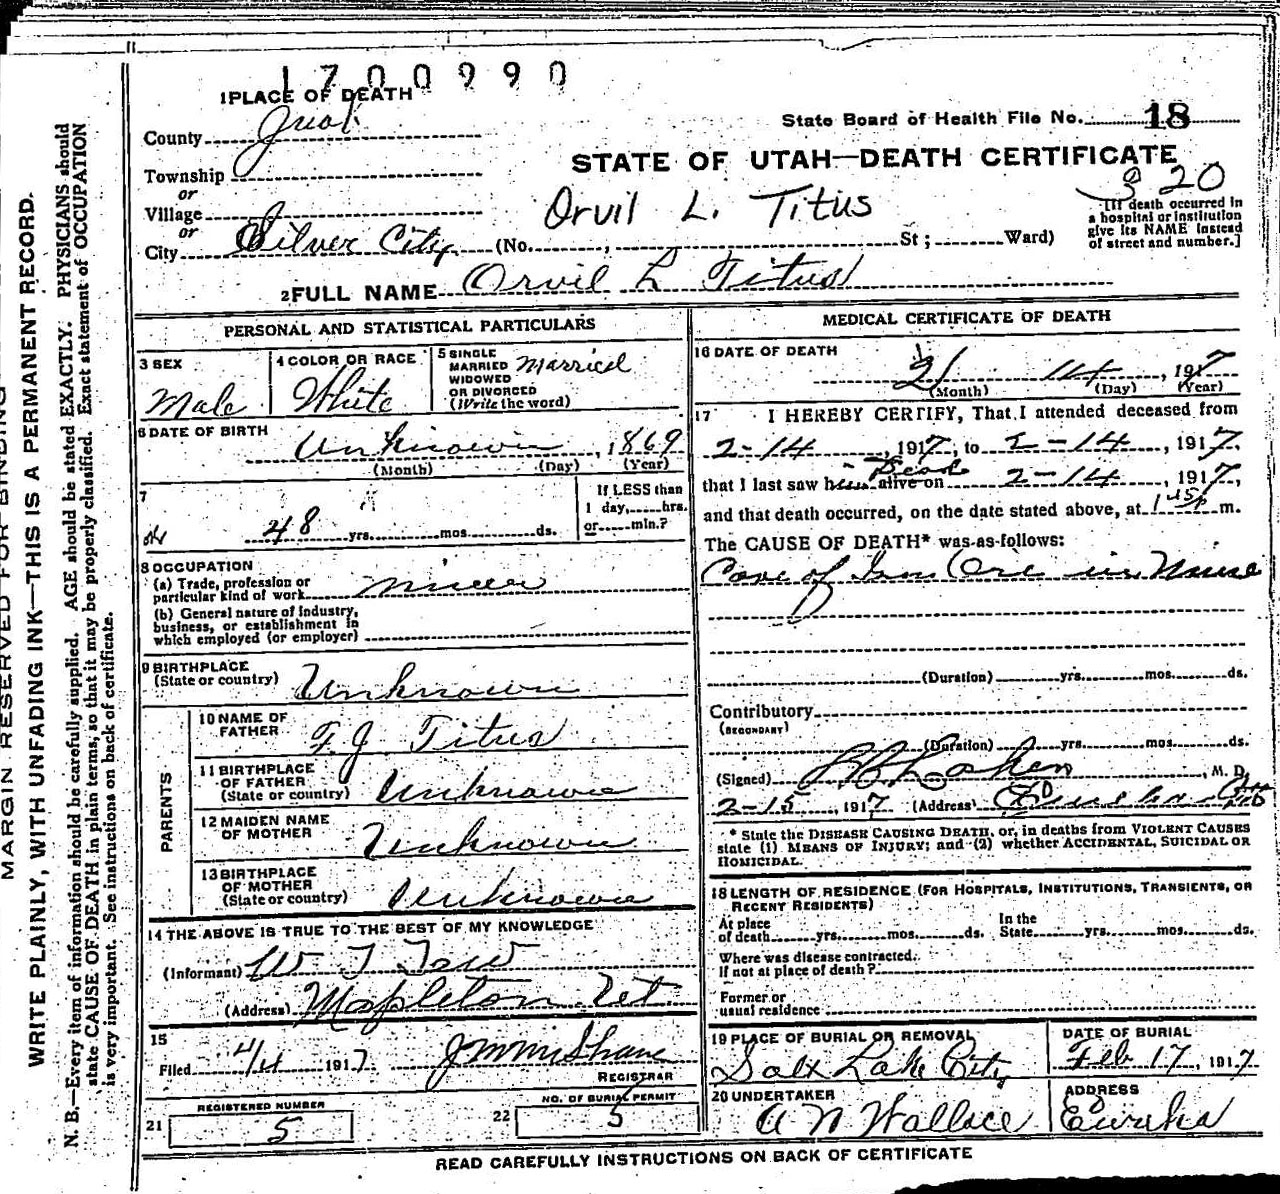 1700990
1 PLACE OF DEATH
County Juab
State Board of Health File No. 18
STATE OF UTAH—DEATH CERTIFICATE
Township
or
Village
or
City Silver City (No. , St; Ward)
Orvil L. Titus
320
[If death occurred in
a hospital or institution
give its NAME instead
of street and number.]
2 FULL NAME Orvil L Titus
PERSONAL AND STATISTICAL PARTICULARS
3 SEX
Male
4 COLOR OR RACE
White
5 SINGLE
MARRIED
WIDOWED
OR DIVORCED
(Write the word)
Married
6 DATE OF BIRTH
Unknown , 1869
(Month) (Day) (Year)
7
48 yrs. mos. ds.
If LESS than
1 day, hrs.
or min.?
8 OCCUPATION
(a) Trade, profession or
particular kind of work miner
(b) General nature of industry,
business, or establishment in
which employed (or employer)
9 BIRTHPLACE
(State or country) Unknown
PARENTS
10 NAME OF
FATHER F J Titus
11 BIRTHPLACE
OF FATHER
(State or country) Unknown
12 MAIDEN NAME
OF MOTHER Unknown
13 BIRTHPLACE
OF MOTHER
(State or country) Unknown
14 THE ABOVE IS TRUE TO THE BEST OF MY KNOWLEDGE
(Informant) W T
(Address) Mapleton Ut
15
Filed 4/4 1917
REGISTRAR
REGISTERED NUMBER
21 5
NO. OF BURIAL PERMIT
22 5
MEDICAL CERTIFICATE OF DEATH
16 DATE OF DEATH
2 14 , 1917
(Month) (Day) (Year)
17 I HEREBY CERTIFY, That I attended deceased from
2-14 , 1917, to 2-14 , 1917.
that I last saw him alive on Dead 2-14 , 1917,
and that death occurred, on the date stated above, at 1 45 P m.
The CAUSE OF DEATH* was as follows:
Cave of Iron Ore in Mine
(Duration) yrs. mos. ds.
Contributory
(SECONDARY)
(Duration) yrs. mos. ds.
(Signed) , M. D.
2-15 , 1917 (Address)
* State the DISEASE CAUSING DEATH, or, in deaths from VIOLENT CAUSES
state (1) MEANS OF INJURY; and (2) whether ACCIDENTAL, SUICIDAL OR
HOMICIDAL.
18 LENGTH OF RESIDENCE (FOR HOSPITALS, INSTITUTIONS, TRANSIENTS, OR
RECENT RESIDENTS)
At place
of death yrs. mos. ds.
In the
State yrs. mos. ds.
Where was disease contracted,
If not at place of death?
Former or
usual residence
19 PLACE OF BURIAL OR REMOVAL
Salt Lake City
DATE OF BURIAL
Feb 17, 1917
20 UNDERTAKER
A N Wallace
ADDRESS
Eureka
READ CAREFULLY INSTRUCTIONS ON BACK OF CERTIFICATE
MARGIN RESERVED FOR BINDING
WRITE PLAINLY, WITH UNFADING INK—THIS IS A PERMANENT RECORD.
N. B.—Every item of information should be carefully supplied. AGE should be stated EXACTLY. PHYSICIANS should
state CAUSE OF DEATH in plain terms, so that it may be properly classified. Exact statement of OCCUPATION
is very important. See instructions on back of certificate.